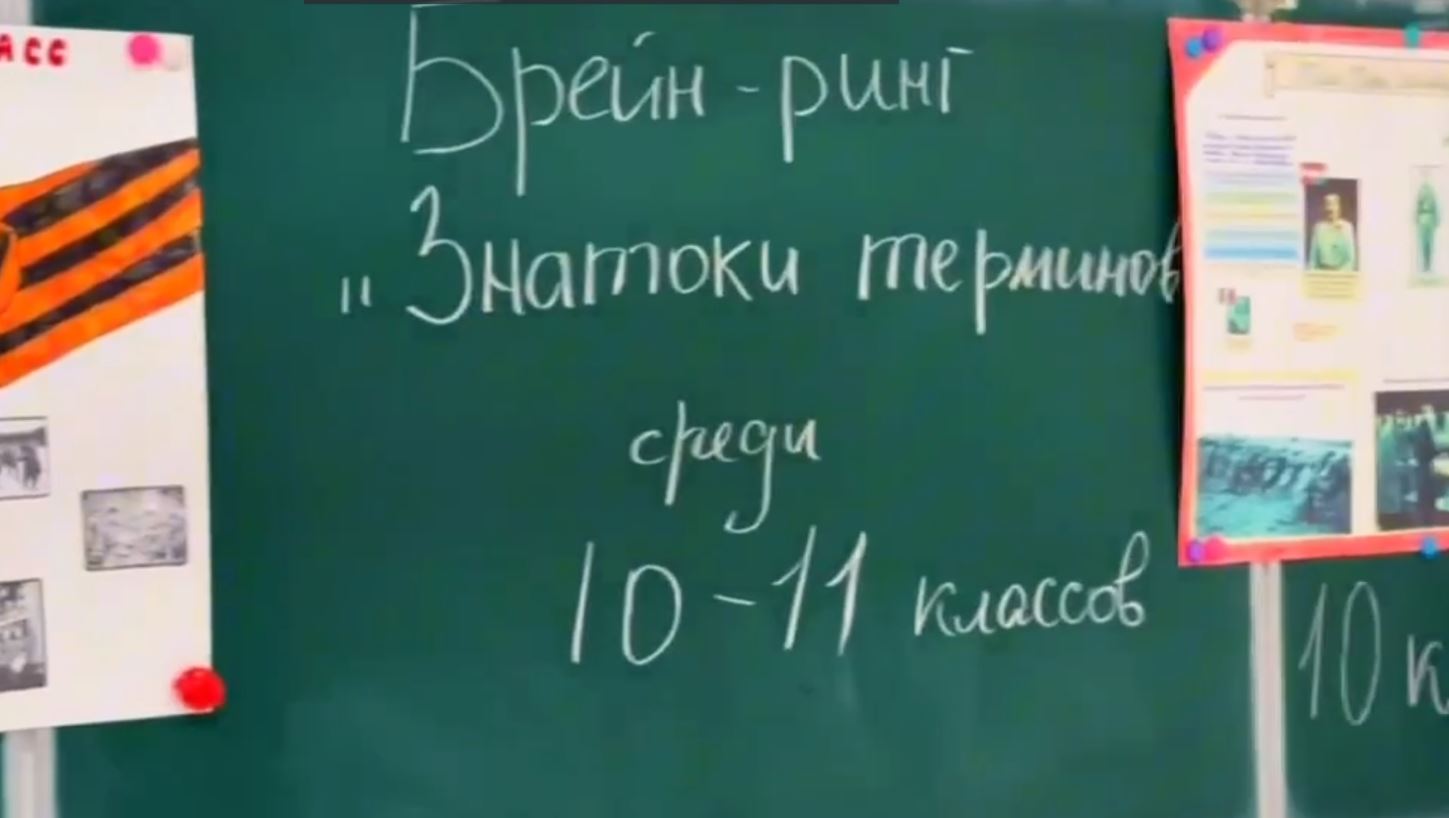 АСС
Брейн-ринг
„Знатоки терминов
среди
10-11 классов
10 к